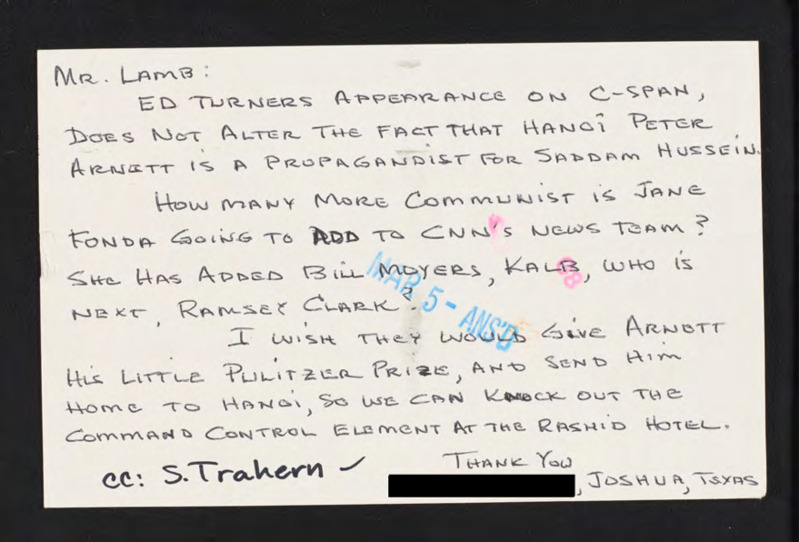 MR. LAMB:
ED TURNERS APPEARANCE ON C-SPAN,
DOES NOT ALTER THE FACT THAT HANOI PETER
ARNETT IS A PROPAGANDIST FOR SADDAM HUSSEIN.
HOW MANY MORE COMMUNIST IS JANE
FONDA GOING TO ADD TO CNN'S NEWS TEAM?
SHE HAS ADDED BILL MOYERS, KALB, WHO IS
NEXT, RAMSEY CLARK?
MAR 5 - ANS'D
I WISH THEY WOULD GIVE ARNETT
HIS LITTLE PULITZER PRIZE, AND SEND HIM
HOME TO HANOI, SO WE CAN KNOCK OUT THE
COMMAND CONTROL ELEMENT AT THE RASHID HOTEL.
THANK YOU
cc: S. Trahern ✓
, JOSHUA, TEXAS